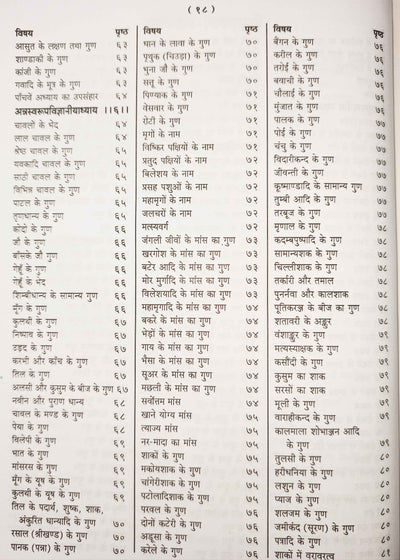 ( १८ )
विषय पृष्ठ
आसुत के लक्षण तथा गुण ६३
शाण्डाकी के गुण ६३
कांजी के गुण ६३
गवादि के मूत्र के गुण ६३
पाँचवें अध्याय का उपसंहार ६४
अन्नस्वरूपविज्ञानीयाध्याय ।।६।।
चावलों के भेद ६४
लाल चावल के गुण ६४
श्रेष्ठ चावल के गुण ६५
यवकादि चावल के गुण ६५
साठी चावल के गुण ६५
विभिन्न चावल के गुण ६५
पाटल के गुण ६५
तृणधान्य के गुण ६५
कोदो के गुण ६६
जौ के गुण ६६
बाँसके जौ के गुण ६६
गेहूँ के गुण ६६
गेहूँ के भेद ६६
शिम्बीधान्य के सामान्य गुण ६६
मूँग के गुण ६६
कुलथी के गुण ६६
निष्पाव के गुण ६७
उड़द के गुण ६७
करभी और काँच के गुण ६७
तिल के गुण ६७
अलसी और कुसुम के बीज के गुण ६७
नवीन और पुराण धान्य ६८
चावल के मण्ड के गुण ६८
पेया के गुण ६८
विलेपी के गुण ६८
भात के गुण ६९
मांसरस के गुण ६९
मूँग के यूष के गुण ६९
कुलथी के यूष के गुण ६९
तिल के पदार्थ, शुष्क, शाक,
अंकुरित धान्यादि के गुण ७०
रसाल (श्रीखण्ड) के गुण ७०
पानक (पन्ना) के गुण ७०
विषय पृष्ठ
धान के लावा के गुण ७०
पृथुक (चिउड़ा) के गुण ७०
भुना जौ के गुण ७०
सत्तू के गुण ७०
पिण्याक के गुण ७१
वेसवार के गुण ७१
रोटी के गुण ७१
मृगों के नाम ७१
विष्किर पक्षियों के नाम ७१
प्रतुद पक्षियों के नाम ७२
बिलेशय के नाम ७२
प्रसह पशुओं के नाम ७२
महामृगों के नाम ७२
जलचरों के नाम ७२
मत्स्यवर्ग ७२
जंगली जीवों के मांस का गुण ७३
खरगोश के मांस का गुण ७३
बटेर आदि के मांस का गुण ७३
मोर मुर्गादि के मांस का गुण ७३
विलेशयादि के मांस का गुण ७३
महामृगादि के मांस का गुण ७४
बकरे के मांस का गुण ७४
भेड़ों के मांस का गुण ७४
गाय के मांस का गुण ७४
भैंसा के मांस का गुण ७४
सूअर के मांस का गुण ७४
मछली के मांस का गुण ७४
सर्वोतम मांस ७४
खाने योग्य मांस ७५
त्याज्य मांस ७५
नर-मादा का मांस ७५
शाकों के गुण ७५
मकोयशाक के गुण ७५
चांगेरीशाक के गुण ७५
पटोलादिशाक के गुण ७५
परवल के गुण ७६
दोनों कटेरी के गुण ७६
अडूसा के गुण ७६
करेले के गुण ७६
पृष्ठ
बैंगन के गुण ७६
करील के गुण ७६
तरोई के गुण ७६
बवाची के गुण ७६
चौलाई के गुण ७६
मुंजात के गुण ७६
पालक के गुण ७७
पोई के गुण ७७
चंचु के गुण ७७
विदारीकन्द के गुण ७७
जीवन्ती के गुण ७७
कूष्माण्डादि के सामान्य गुण ७७
तुम्बी आदि के गुण ७७
तरबूज के गुण ७७
मृणाल के गुण ७८
कदम्बपुष्पादि के गुण ७८
सामान्यशाक के गुण ७८
चिल्लीशाक के गुण ७८
तर्कारी और तमाल ७८
पुनर्नवा और कालशाक ७८
पूतिकरञ्ज के बीज का गुण ७८
शतावरी के अङ्कुर ७८
वंशाङ्कुर के गुण ७९
मत्स्याख्यक के गुण ७९
कसौंदी के गुण ७९
कुसुम का शाक ७९
सरसों का शाक ७९
मूली के गुण ७९
वाराहीकन्द के गुण ७९
कालमाला शोभाञ्जन आदि
के गुण ७९
तुलसी के गुण ८०
हरीधनिया के गुण ८०
लशुन के गुण ८०
प्याज के गुण ८०
शलजम के गुण ८०
जमीकंद (सूरण) के गुण ८०
पत्रादि के गुण ८०
शाकों में वरावरत्व ८१